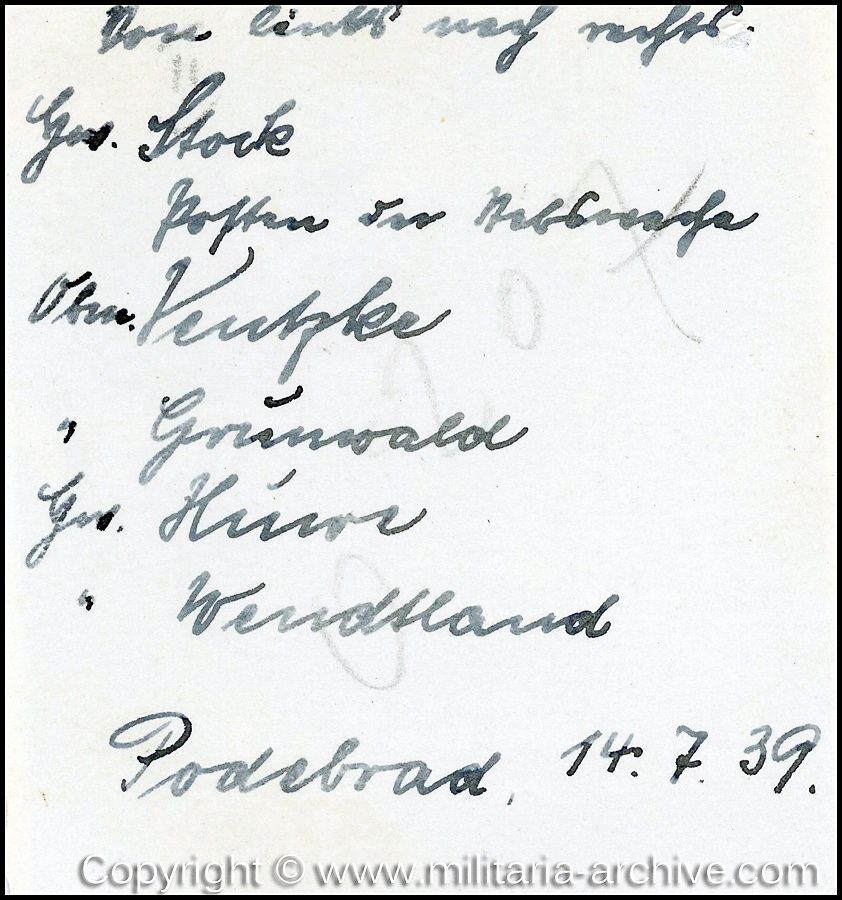 Von links nach rechts.
Gw. Stock
Posten der Stabswache
Obm. Ventzke
" Grünwald
Gw. Hüwe
" Wendtland
Podebrad, 14. 7. 39.
Copyright © www.militaria-archive.com